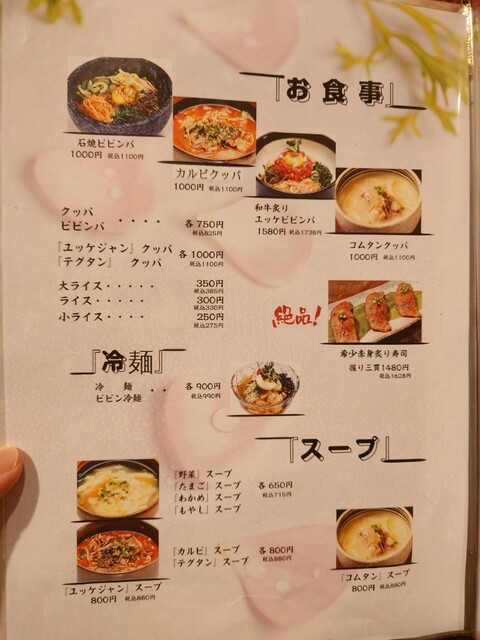 『お食事』
石焼ビビンバ
1000円 税込1100円
カルビクッパ
1000円 税込1100円
和牛炙り
ユッケビビンバ
1580円 税込1738円
コムタンクッパ
1000円 税込1100円
クッパ
ビビンバ ・・・・ 各750円
税込825円
『ユッケジャン』クッパ
『テグタン』 クッパ
各1000円
税込1100円
大ライス・・・・・ 350円
税込385円
ライス・・・・・ 300円
税込330円
小ライス・・・・ 250円
税込275円
絶品!
希少赤身炙り寿司
握り三貫1480円
税込1628円
『冷麺』
冷 麺
ビビン冷麺 ・・ 各900円
税込990円
『スープ』
『野菜』スープ
『たまご』スープ
『わかめ』スープ
『もやし』スープ
各650円
税込715円
『カルビ』スープ
『テグタン』スープ
各800円
税込880円
『ユッケジャン』スープ
800円 税込880円
『コムタン』スープ
800円 税込880円